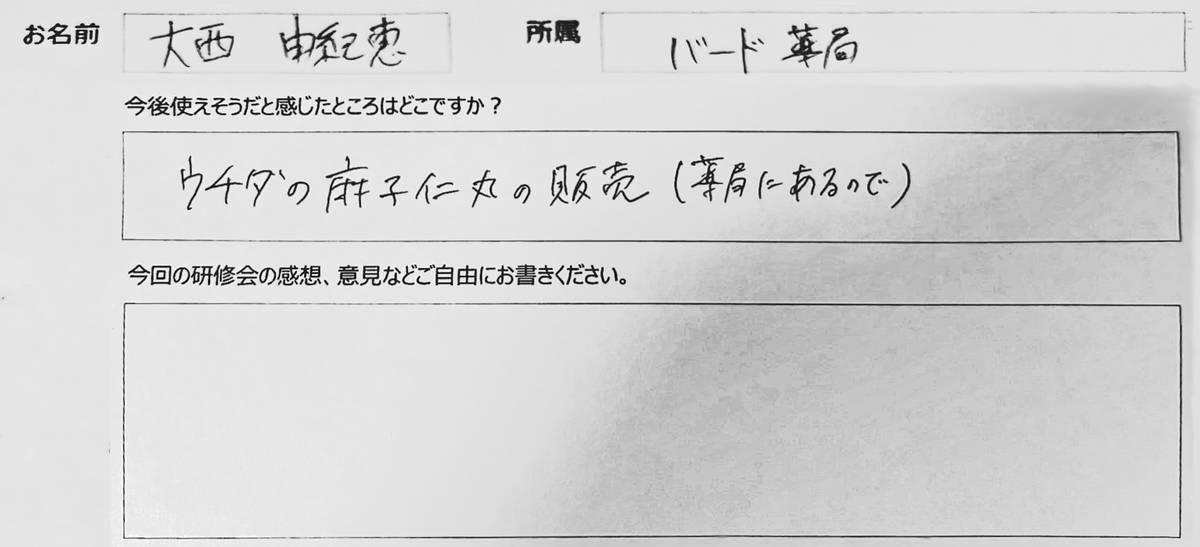 お名前 大西 由紀恵 所属 バード薬局
今後使えそうだと感じたところはどこですか？
ウチダの麻子仁丸の販売(薬局にあるので)
今回の研修会の感想、意見などご自由にお書きください。